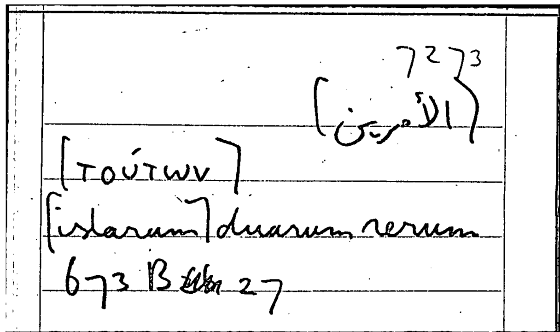 7273
[الأمرين]
[τούτων]
[istarum] duarum rerum
673 B 27